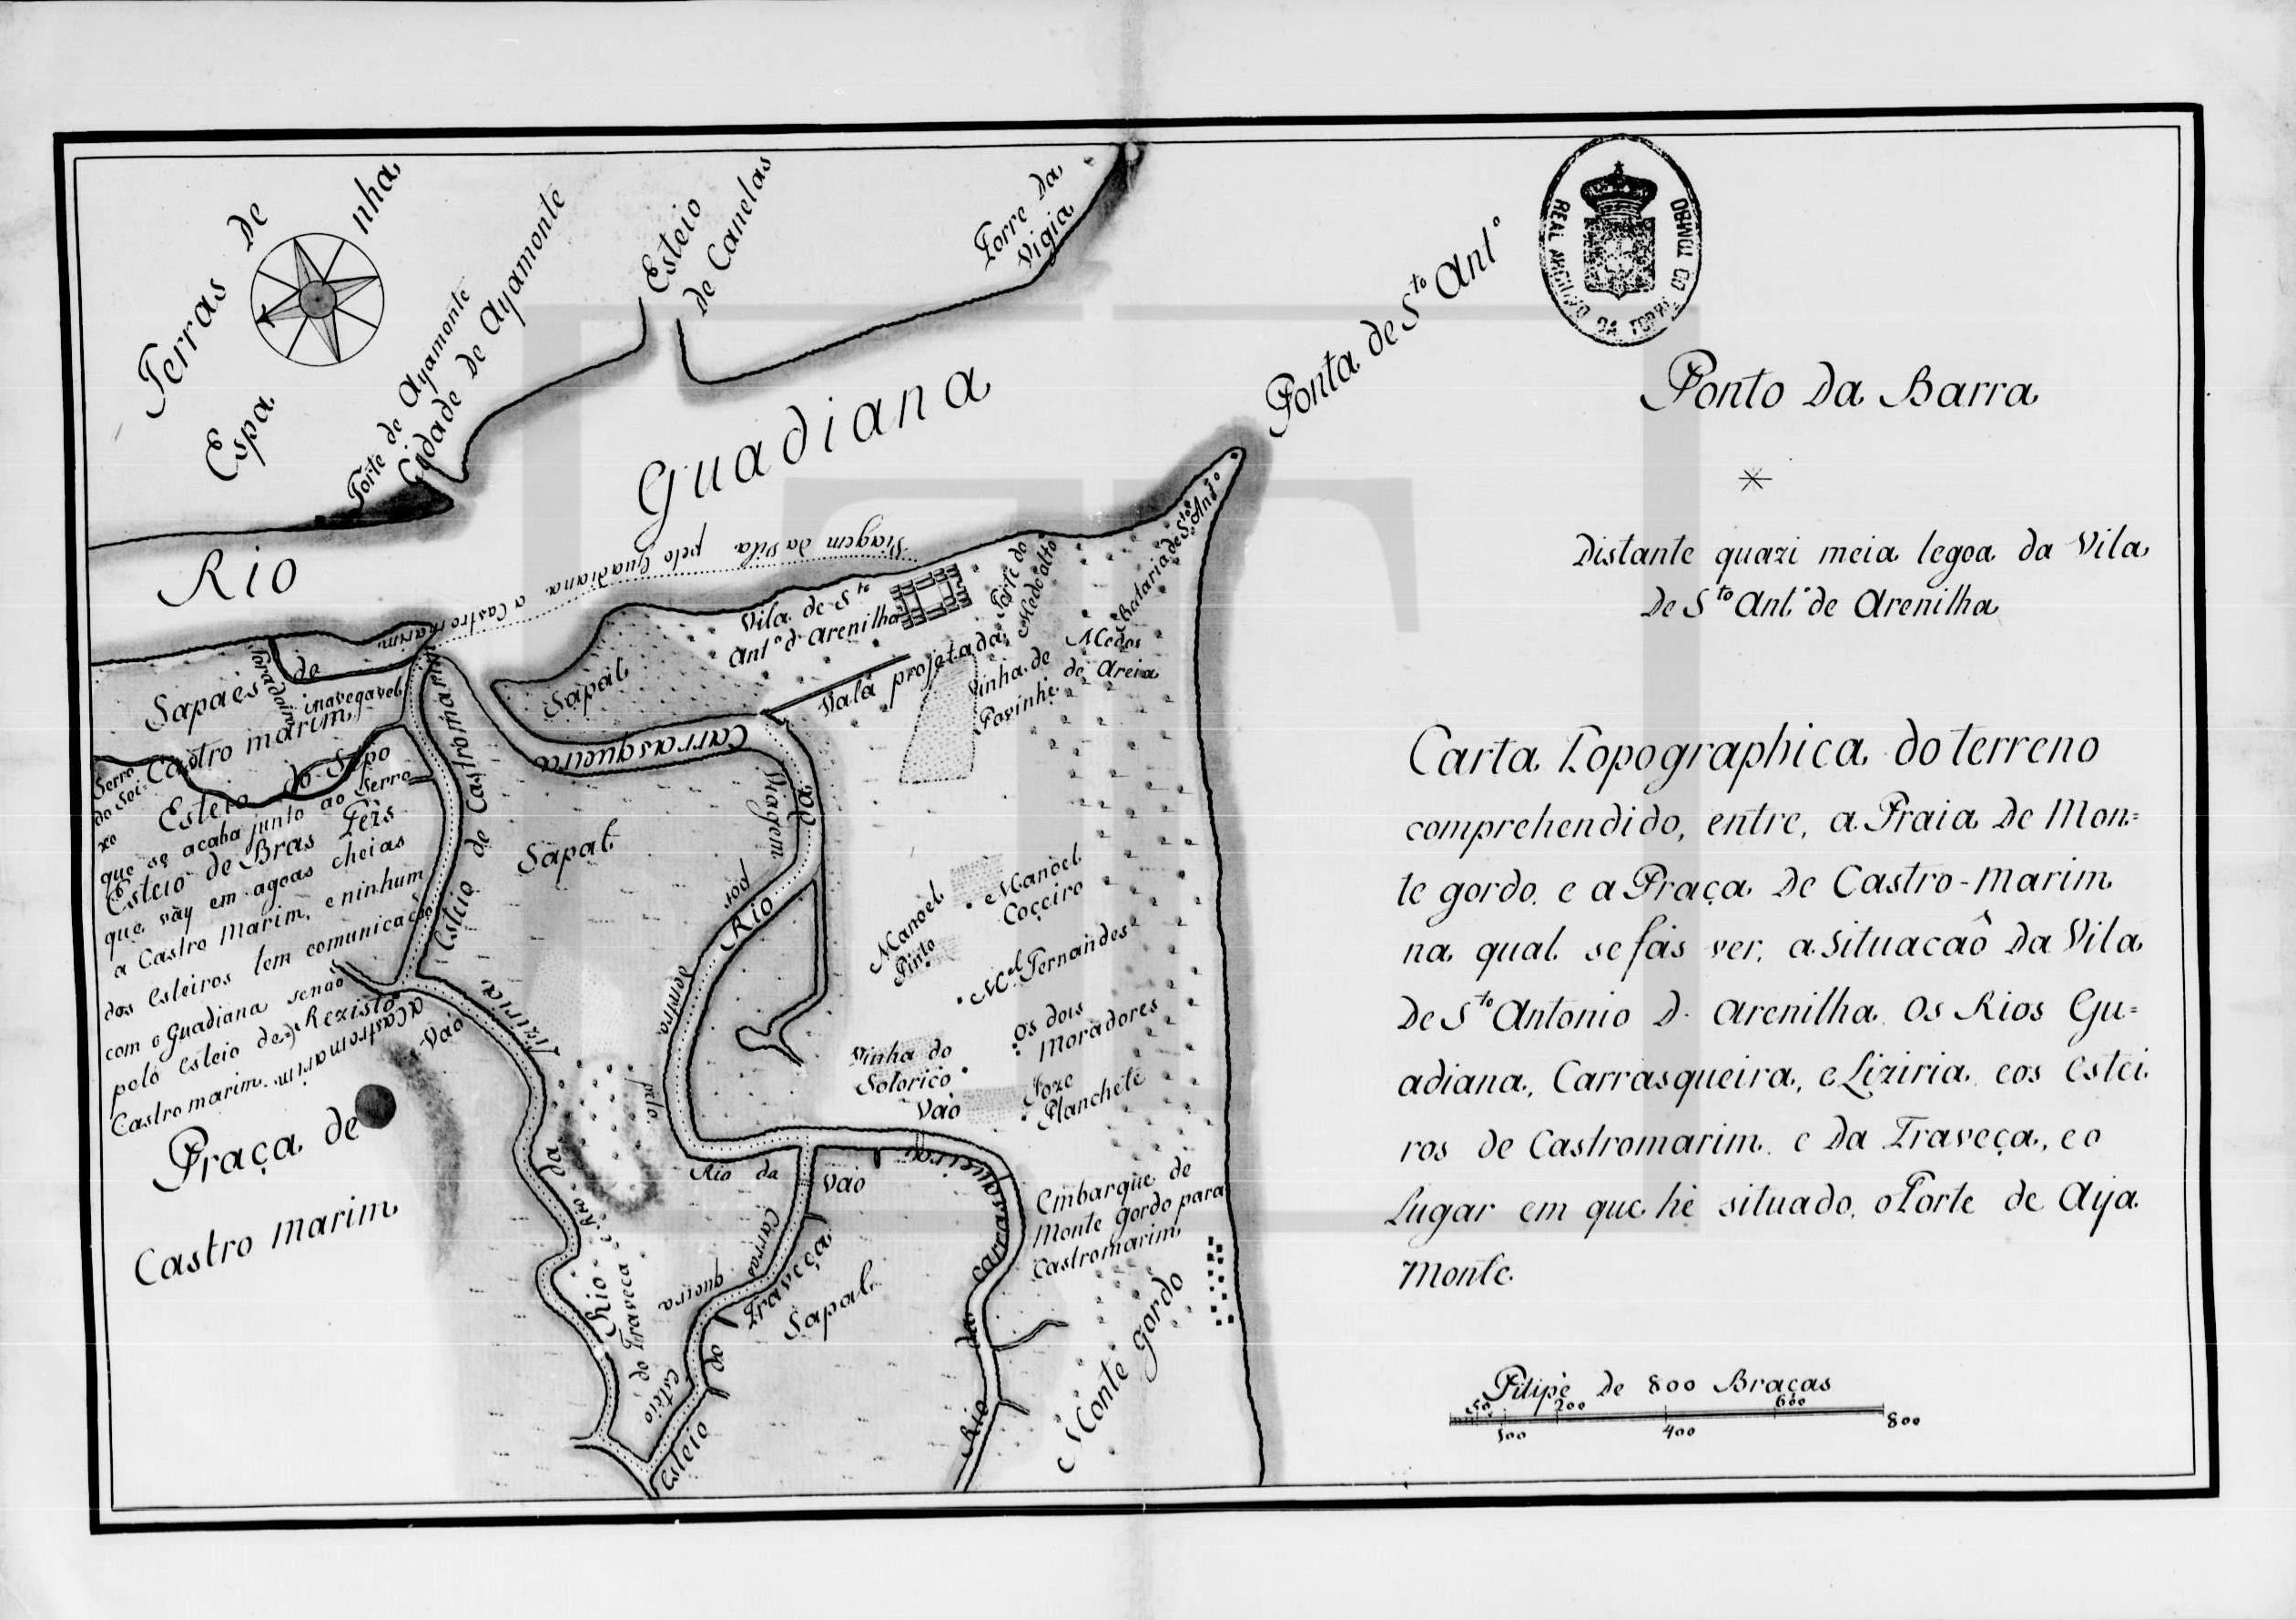 Terras de
Espa nha
Forte de Ayamonte
Cidade de Ayamonte
Esteio
de Canelas
Torre da
Vigia
Rio Guadiana
Ponta de Sto Anto
REAL ARCHIVO DA TORRE DO TOMBO
Ponto da Barra
Distante quazi meia legoa da Vila
de Sto Anto de Arenilha
Carta Topographica do terreno
comprehendido, entre, a Praia de Mon=
te gordo. e a Praça de Castro-Marim
na qual se fás ver, a Situacaô da Vila
de Sto Antonio D. Arenilha. Os Rios Gu=
adiana, Carrasqueira, e Liziria. eos estei
ros de Castromarim. e da Traveça, e o
Lugar em que hé situado. o Forte de Aya
Monte.
Pitipé de 800 Braças
50 200 600
100 400 800
Viagem da Vila pelo Guadiana a Castro marim
Vila de Sto
Anto d'Arenilha
Forte do
Medo alto
Bataria de Sto Anto
Medos
de Areia
Vinha de
Povinhe
Valá projetada
Sapal
Sapaés de
Castro marim
inavegavel
Serro
do Sei-
xo
Esteio do Sapo
que se acaba junto ao Serro
Esteio de Bras Frz
que vay em agoas cheias
a Castro Marim, e ninhum
dos esteiros tem comunicação
com o Guadiana senaõ
pelo esteio de
Castro marim
Rezisto
a Castromarim
Vao
Esteio de Castromarim
Carrasqueira
Rio da
Viagem por
pelo
Sapal
Manoel
Pinto
Manoel
Coçeiro
Mel Fernandes
Os dois
Moradores
Vinha do
Solorico
Vao
Joze
Planchete
Praça de
Castro Marim
Rio da Liziria
Rio da Carras queira
Vao
Rio da Carrasqueira
Embarque de
Monte gordo para
Castromarim
Rio
esteio do Traveca
esteio da Traveça
Sapal
Monte gordo